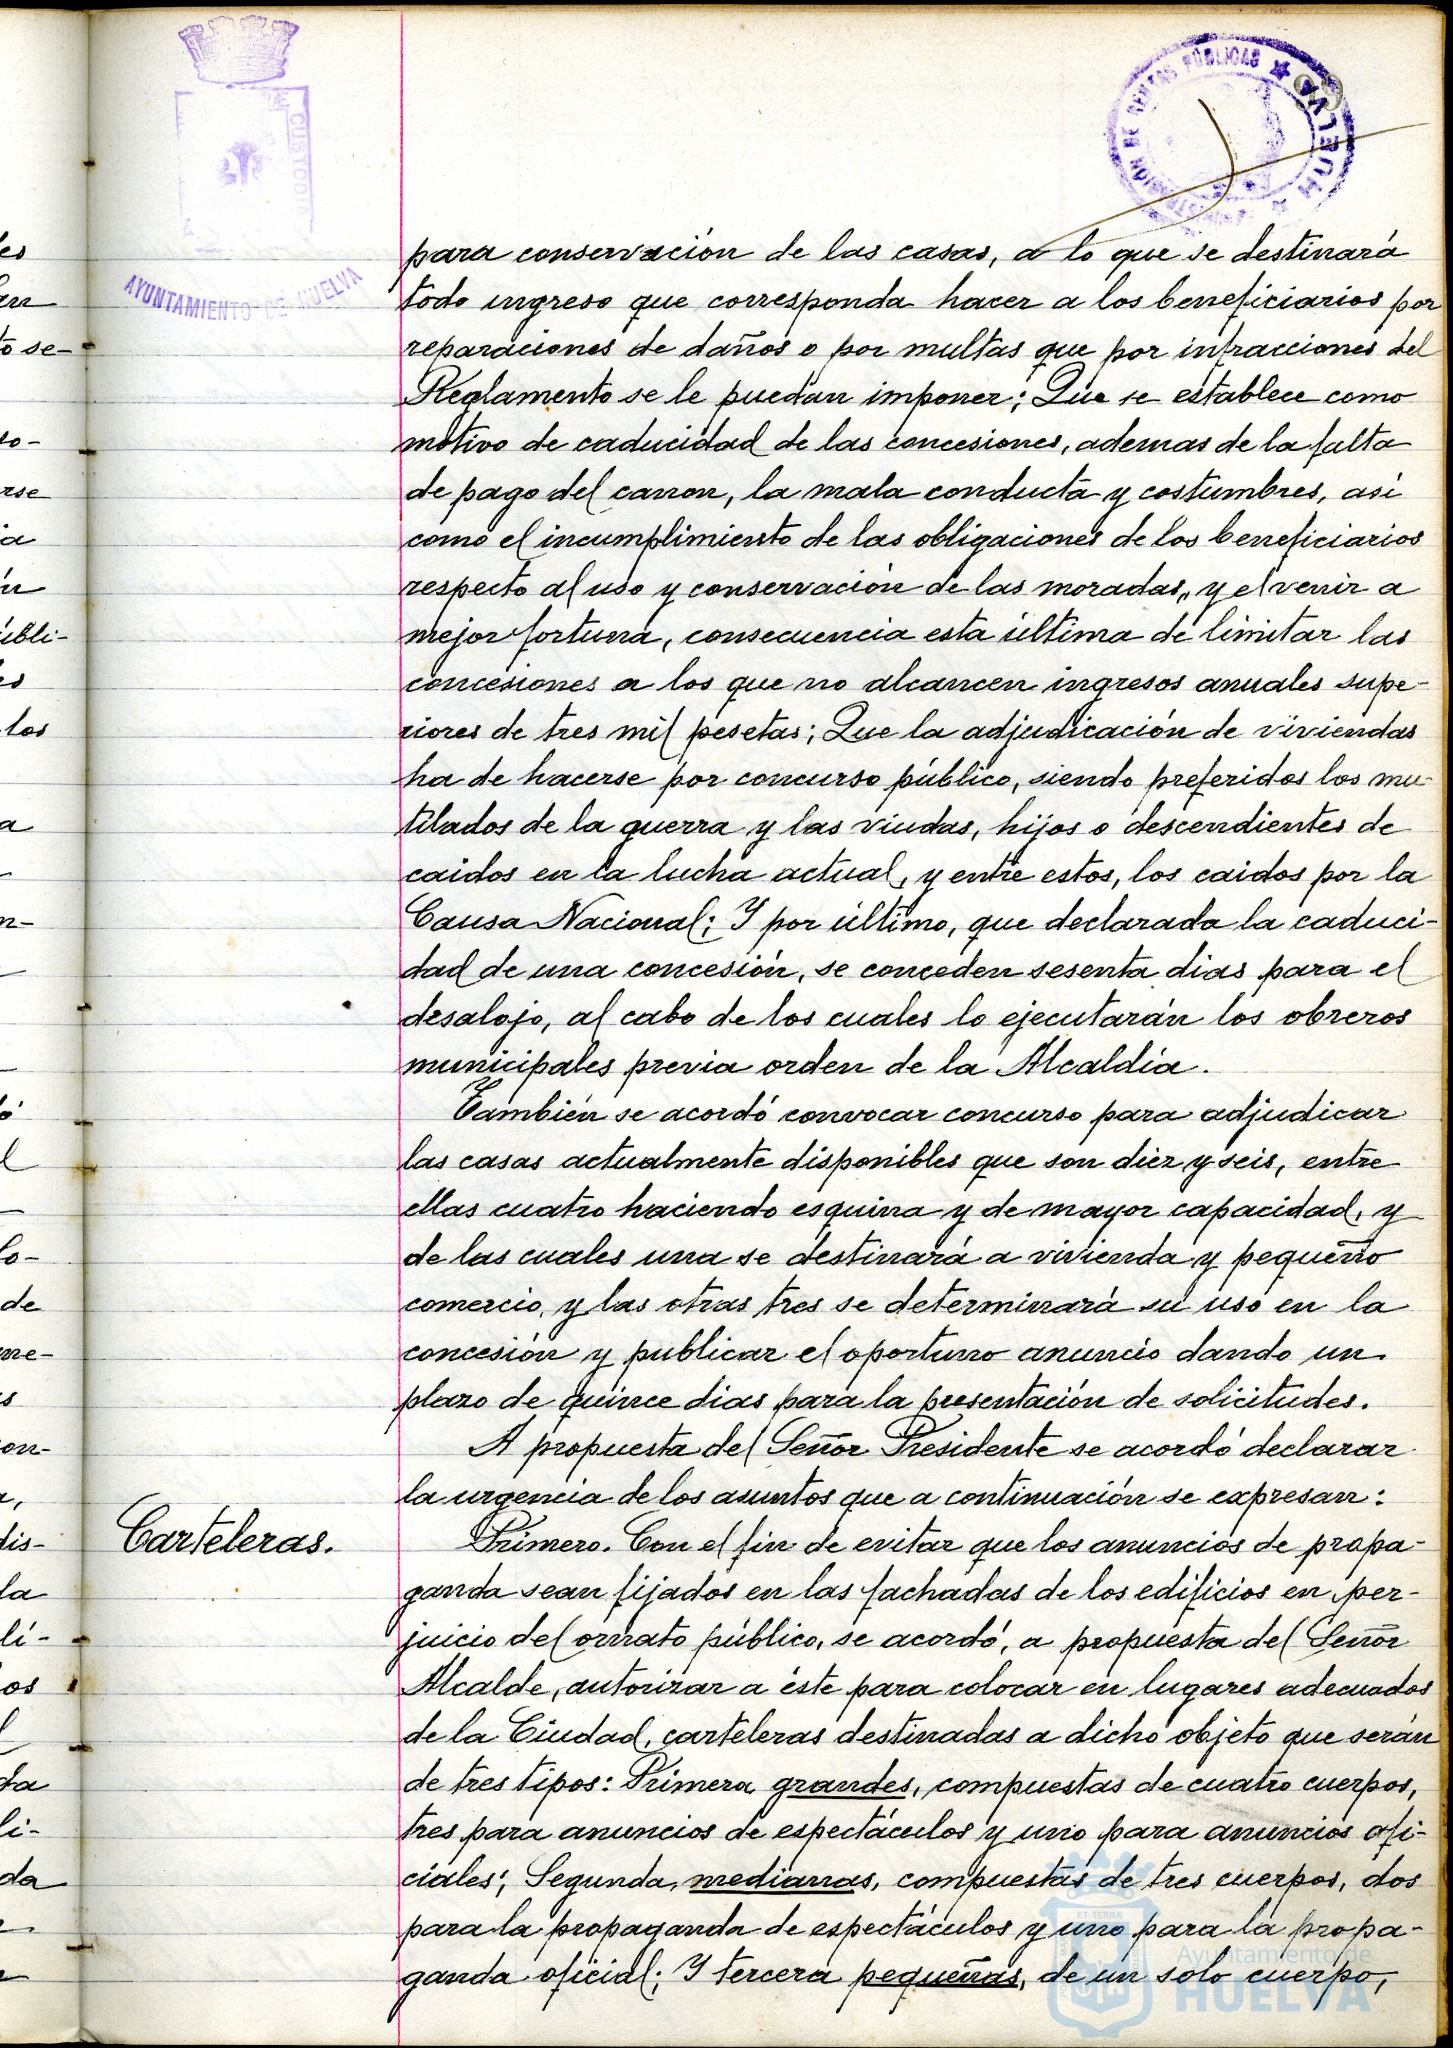 CUSTODIA
AYUNTAMIENTO DE HUELVA
DE RENTAS PÚBLICAS
HUELVA
para conservación de las casas, a lo que se destinará
todo ingreso que corresponda hacer a los beneficiarios por
reparaciones de daños o por multas que por infracciones del
Reglamento se le puedan imponer; Que se establece como
motivo de caducidad de las concesiones, ademas de la falta
de pago del canon, la mala conducta y costumbres, así
como el incumplimiento de las obligaciones de los beneficiarios
respecto al uso y conservación de las moradas, y el venir a
mejor fortuna, consecuencia esta última de limitar las
concesiones a los que no alcancen ingresos anuales supe-
riores de tres mil pesetas; Que la adjudicación de viviendas
ha de hacerse por concurso público, siendo preferidos los mu-
tilados de la guerra y las viudas, hijos o descendientes de
caidos en la lucha actual, y entre estos, los caidos por la
Causa Nacional; Y por último, que declarada la caduci-
dad de una concesión, se conceden sesenta dias para el
desalojo, al cabo de los cuales lo ejecutarán los obreros
municipales previa orden de la Alcaldía.
También se acordó convocar concurso para adjudicar
las casas actualmente disponibles que son diez y seis, entre
ellas cuatro haciendo esquina y de mayor capacidad, y
de las cuales una se destinará a vivienda y pequeño
comercio, y las otras tres se determinará su uso en la
concesión y publicar el oportuno anuncio dando un
plazo de quince dias para la presentación de solicitudes.
A propuesta del Señor Presidente se acordó declarar
la urgencia de los asuntos que a continuación se expresan:
Carteleras.
Primero. Con el fin de evitar que los anuncios de propa-
ganda sean fijados en las fachadas de los edificios en per-
juicio del ornato público, se acordó, a propuesta del Señor
Alcalde, autorizar a éste para colocar en lugares adecuados
de la Ciudad, carteleras destinadas a dicho objeto que serán
de tres tipos: Primera grandes, compuestas de cuatro cuerpos,
tres para anuncios de espectáculos y uno para anuncios ofi-
ciales; Segunda, medianas, compuestas de tres cuerpos, dos
para la propaganda de espectáculos y uno para la propa-
ganda oficial; Y tercera pequeñas, de un solo cuerpo,
Ayuntamiento de
HUELVA